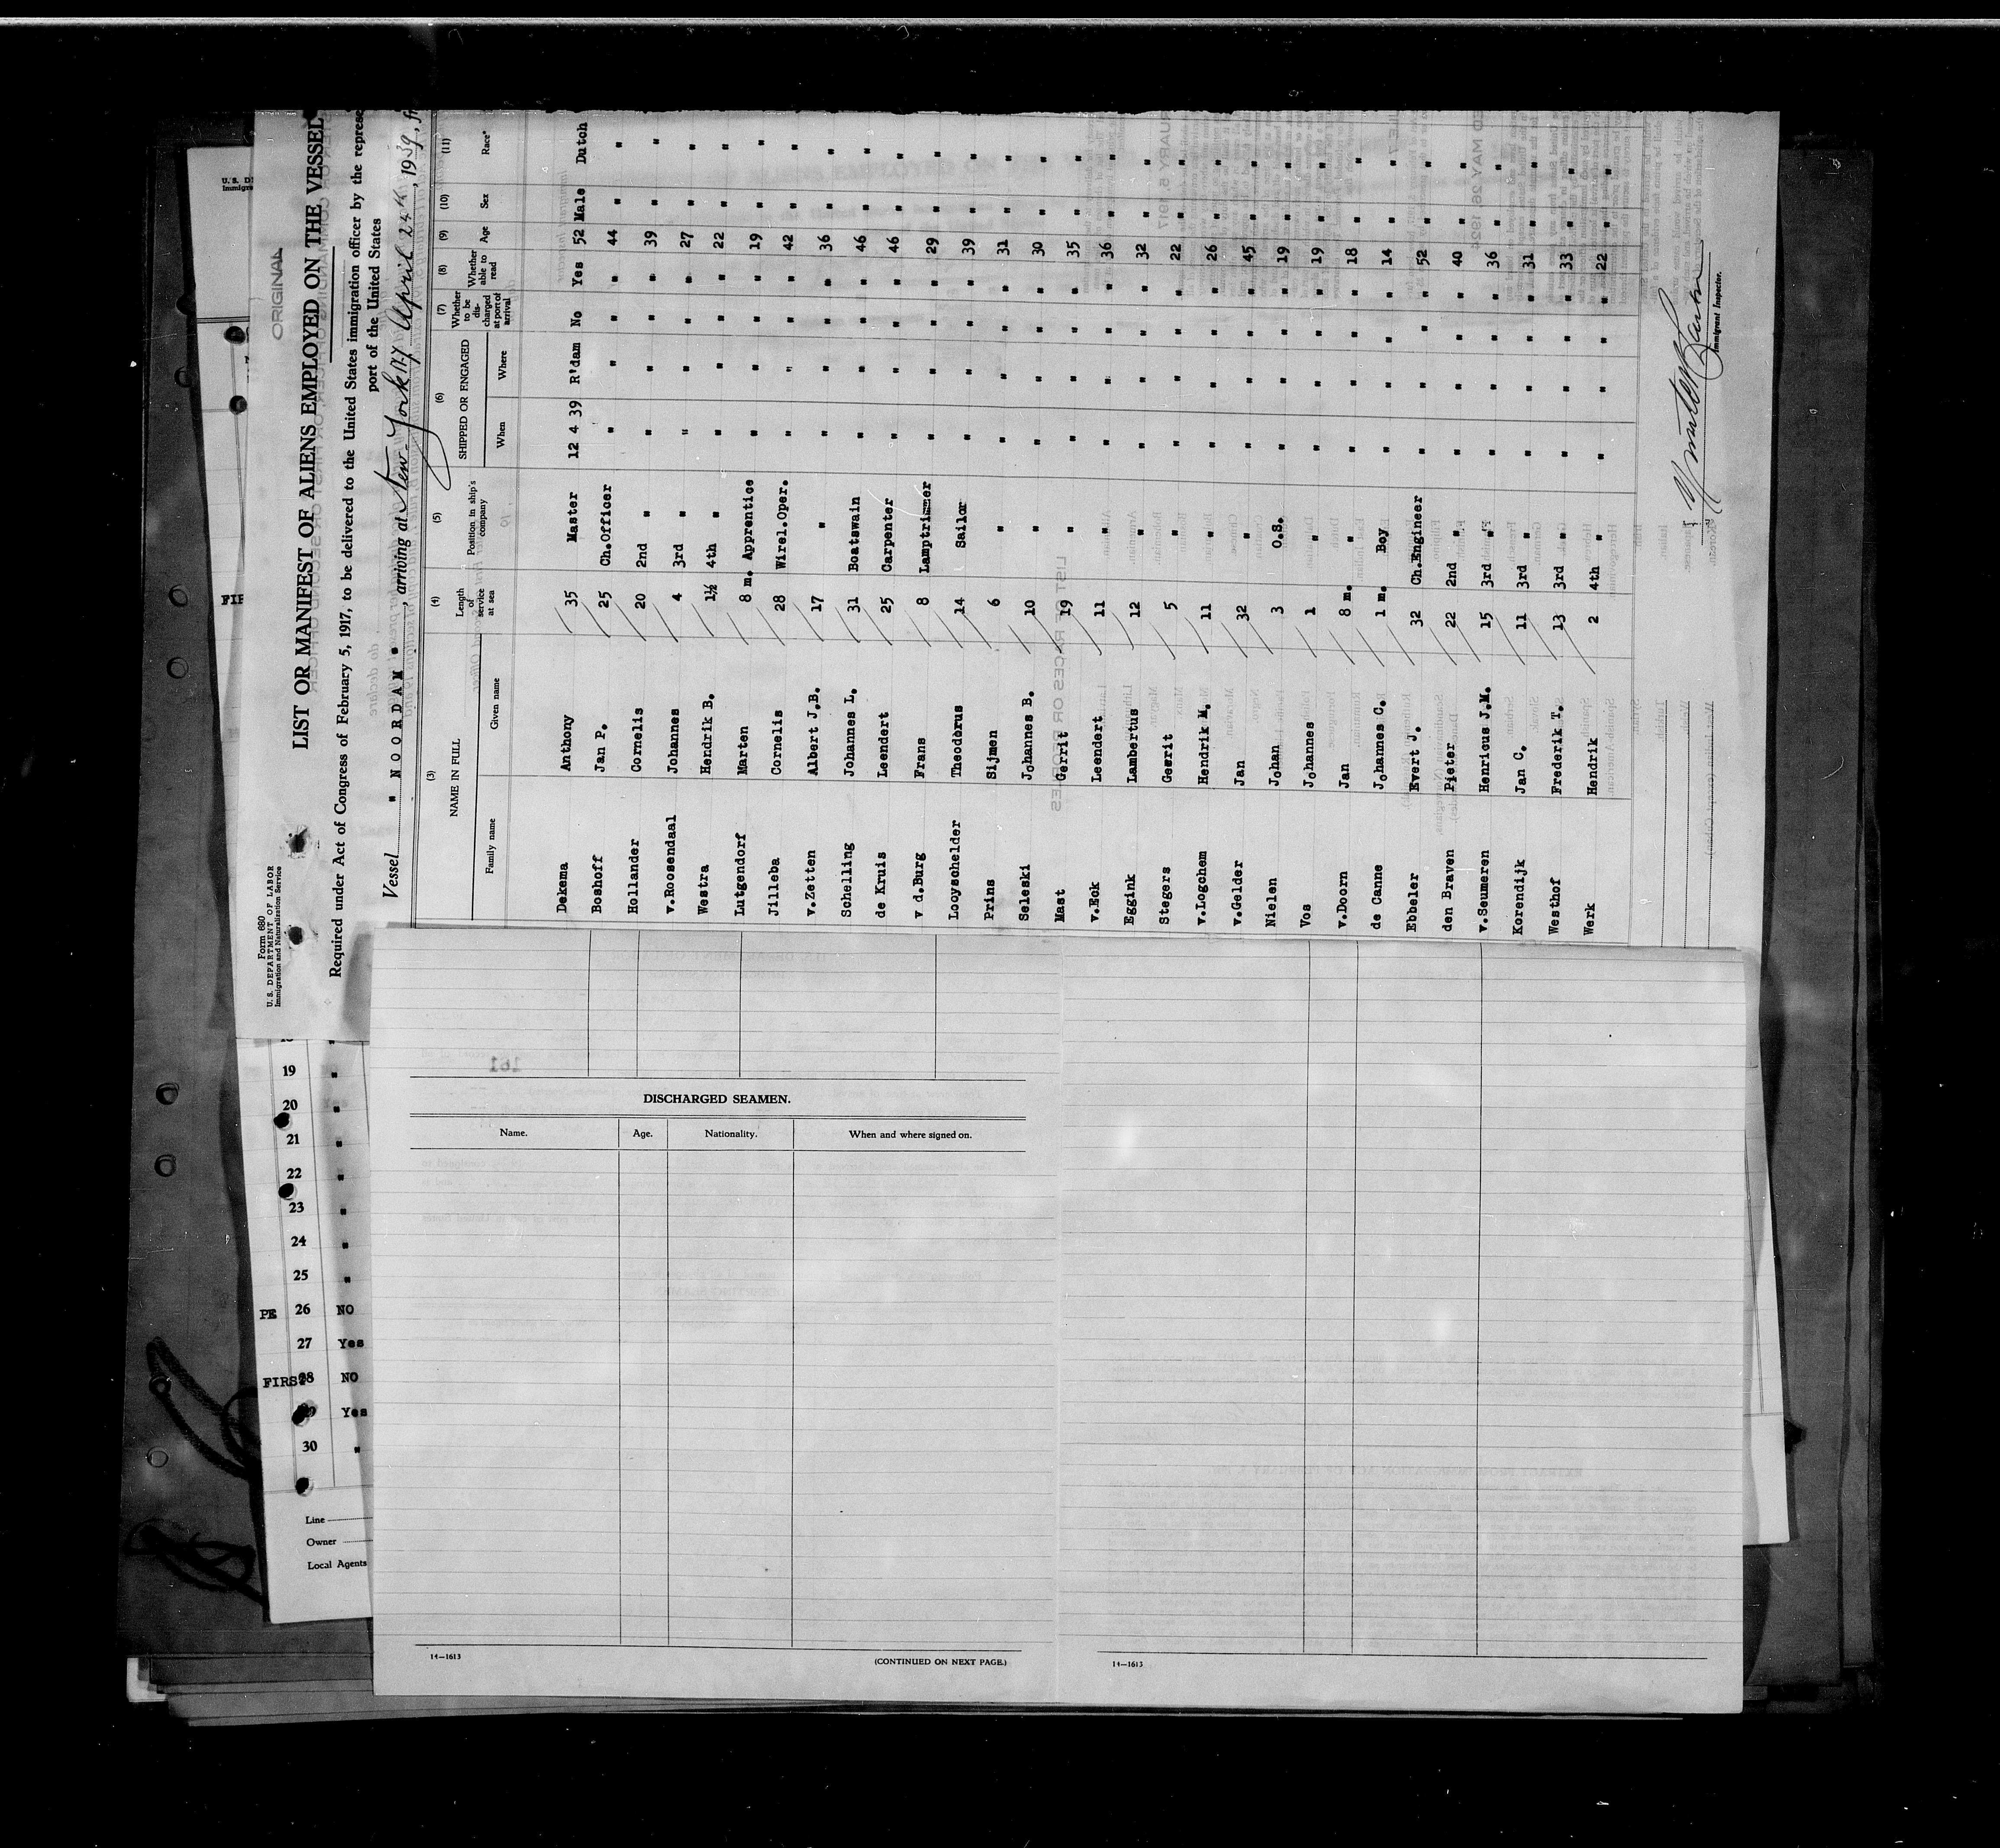 ORIGINAL
Form 680
U. S. DEPARTMENT OF LABOR
Immigration and Naturalization Service
LIST OR MANIFEST OF ALIENS EMPLOYED ON THE VESSEL
Required under Act of Congress of February 5, 1917, to be delivered to the United States immigration officer by the represe
port of the United States
Vessel " NOORDAM " , arriving at New-York N.Y April 24th , 1939, f
(3) (4) (5) (6) (7) (8) (9) (10) (11)
NAME IN FULL Length of service at sea Position in ship's company SHIPPED OR ENGAGED Whether to be discharged at port of arrival Whether able to read Age Sex Race*
Family name Given name When Where
Dekema Anthony 35 Master 12 4 39 R'dam No Yes 52 Male Dutch
Boshoff Jan P. 25 Ch.Officer " " " " 44 " "
Hollander Cornelis 20 2nd " " " " " 39 " "
v.Roosendaal Johannes 4 3rd " " " " " 27 " "
Westra Hendrik B. 1½ 4th " " " " " 22 " "
Lutgendorf Marten 8 m. Apprentice " " " " 19 " "
Jilleba Cornelis 28 Wirel.Oper. " " " " 42 " "
v.Zetten Albert J.B. 17 " " " " " 36 " "
Schelling Johannes L. 31 Boatswain " " " " 46 " "
de Kruis Leendert 25 Carpenter " " " " 46 " "
v d.Burg Frans 8 Lamptrimmer " " " " 29 " "
Looyschelder Theodorus 14 Sailor " " " " 39 " "
Prins Sijmen 6 " " " " " 31 " "
Seleski Johannes B. 10 " " " " " 30 " "
Mast Gerrit 19 " " " " " 35 " "
v.Eck Leendert 11 " " " " " 36 " "
Eggink Lambertus 12 " " " " " 32 " "
Stegers Gerrit 5 " " " " " 22 " "
v.Logchem Hendrik M. 11 " " " " " 26 " "
v.Gelder Jan 32 " " " " " 45 " "
Nielen Johan 3 O.S. " " " " 19 " "
Vos Johannes 1 " " " " " 19 " "
v.Doorn Jan 8 m. " " " " " 18 " "
de Canne Johannes C. 1 m. Boy " " " " 14 " "
Ebbeler Evert J. 32 Ch.Engineer " " " " 52 " "
den Braven Pieter 22 2nd " " " " " 40 " "
v.Seumeren Henricus J.M. 15 3rd " " " " " 36 " "
Korendijk Jan C. 11 3rd " " " " " 31 " "
Westhof Frederik T. 13 3rd " " " " " 33 " "
Werk Hendrik 2 4th " " " " " 22 " "
Immigrant Inspector.
U. S. D
Immigra
FIR
19 "
20 "
21 "
22 "
23 "
24 "
25 "
PE 26 NO
27 Yes
FIRST 28 NO
Yes
30 "
Line
Owner
Local Agents
161
DISCHARGED SEAMEN.
Name. Age. Nationality. When and where signed on.
14—1613
(CONTINUED ON NEXT PAGE.)
14—1613